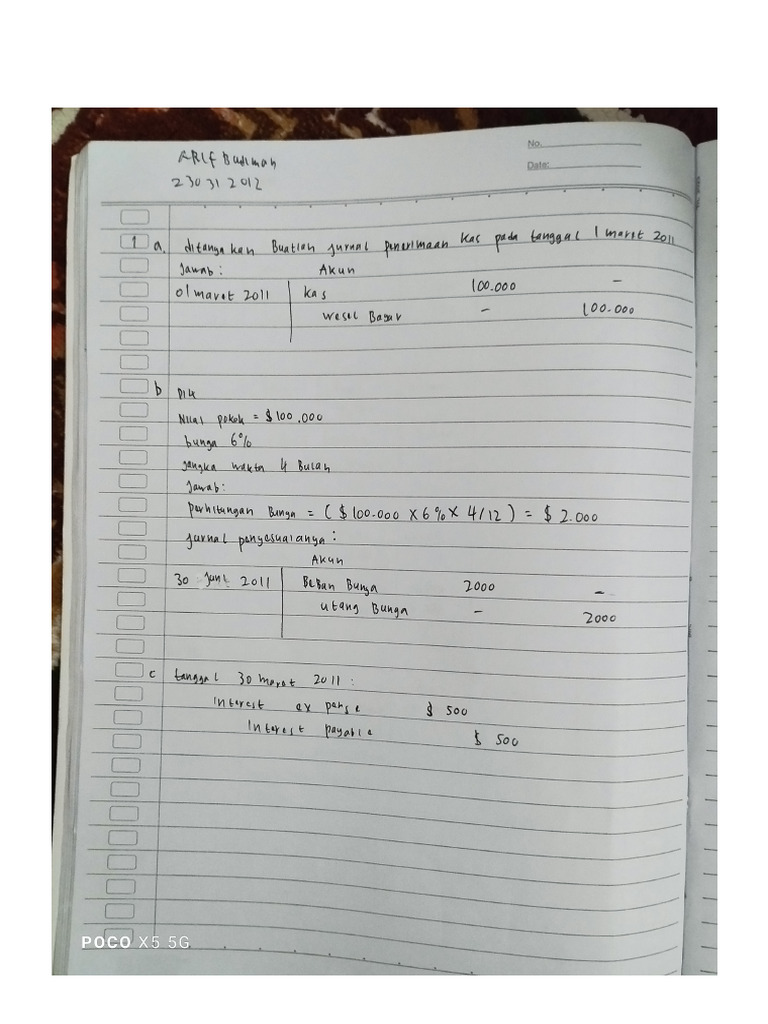 No.
Date:
ARIF Budiman
23031 2012
1 a. ditanyakan Buatlah jurnal penerimaan kas pada tanggal 1 maret 2011
Jawab: Akun
01 maret 2011 kas 100.000 -
wesel Bayar - 100.000
b Dik
Nilai pokok = $100.000
bunga 6%
jangka waktu 4 Bulan
Jawab:
perhitungan Bunga = ( $100.000 X 6% X 4/12 ) = $ 2.000
jurnal penyesuaianya :
Akun
30 Juni 2011 Beban Bunga 2000 -
utang Bunga - 2000
c tanggal 30 maret 2011 :
Interest ex pense $ 500
Interest payable $ 500
POCO X5 5G